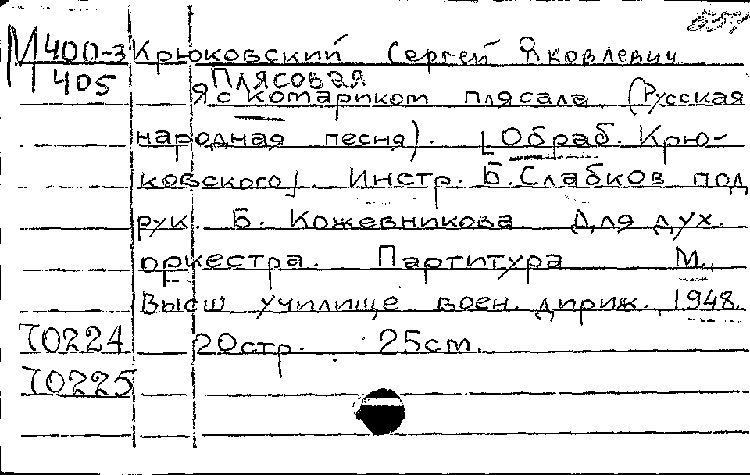 М 400-3 Крюковский Сергей Яковлевич
405 Плясовая
Я с комариком плясала (Русская
народная песня). [Обраб. Крю-
ковского]. Инстр. Б. Слабков под
рук. Б. Кожевникова Для дух.
оркестра. Партитура М.,
Высш училище воен. дириж., 1948.
70224 20стр. 25см.
70225